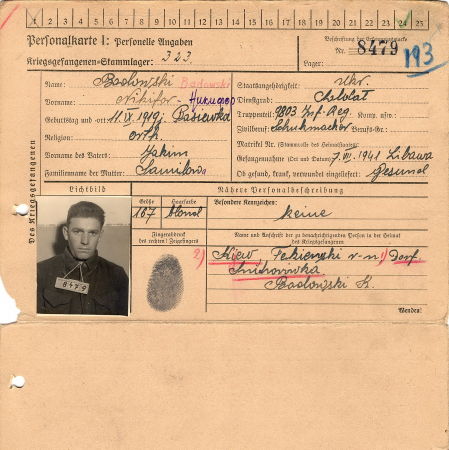 1 2 3 4 5 6 7 8 9 10 11 12 13 14 15 16 17 18 19 20 21 22 23 24 25
Personalkarte I: Personelle Angaben
Kriegsgefangenen-Stammlager: 323
Beschriftung der Erkennungsmarke
Nr. 8479
193
Lager:
Des Kriegsgefangenen
Name: Badowski Badowski
Vorname: Nikifor - Никифор
Geburtstag und -ort: 11.IX.1919,
Religion: orth.
Vorname des Vaters: Jakim
Familienname der Mutter: Samilowa
Staatsangehörigkeit: Ukr.
Dienstgrad: Soldat
Truppenteil: 9803 Inf. Reg. Komp. usw.
Zivilberuf: Schuhmacher Berufs-Gr.
Matrikel Nr. (Stammrolle des Heimatstaates)
Gefangennahme (Ort und Datum) 7.VII.1941 Libawa
Ob gesund, krank, verwundet eingeliefert: Gesund
Lichtbild
8479
Größe
167
Haarfarbe
blond
Fingerabdruck
des rechten Zeigefingers
Nähere Personalbeschreibung
Besondere Kennzeichen:
keine
Name und Anschrift der zu benachrichtigenden Person in der Heimat
des Kriegsgefangenen
2) Kiew, r-n 1) Dorf
Badowski K.
Wenden!